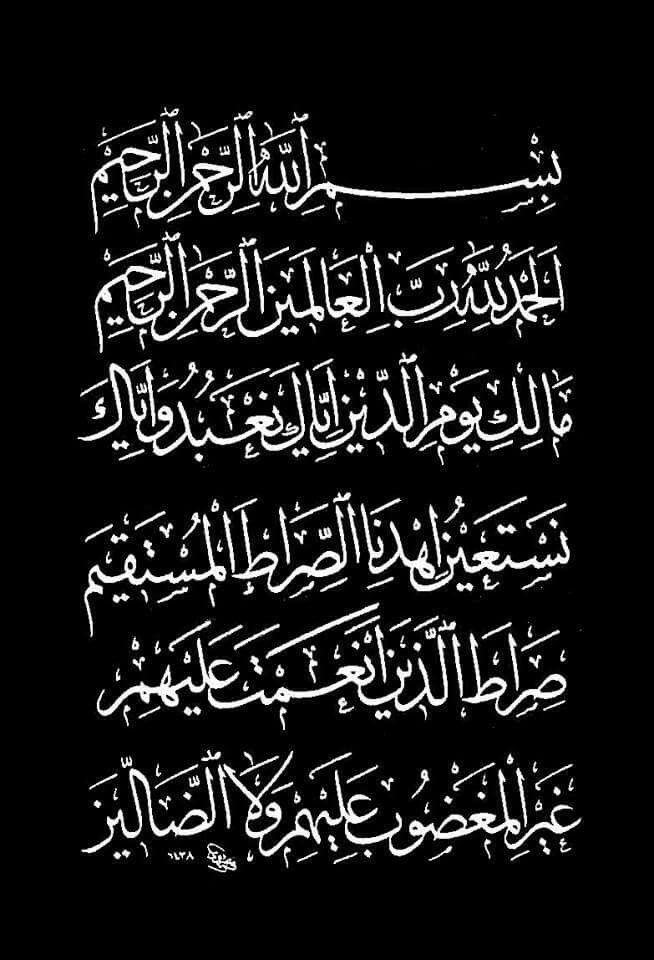 بِسْمِ اللهِ الرَّحْمٰنِ الرَّحِيْمِ
اَلْحَمْدُ لِلّٰهِ رَبِّ الْعَالَمِيْنَ الرَّحْمٰنِ الرَّحِيْمِ
مَالِكِ يَوْمِ الدِّيْنِ اِيَّاكَ نَعْبُدُ وَاِيَّاكَ
نَسْتَعِيْنُ اِهْدِنَا الصِّرَاطَ الْمُسْتَقِيْمَ
صِرَاطَ الَّذِيْنَ اَنْعَمْتَ عَلَيْهِمْ
غَيْرِ الْمَغْضُوْبِ عَلَيْهِمْ وَلَا الضَّالِّيْنَ
١٤٣٨